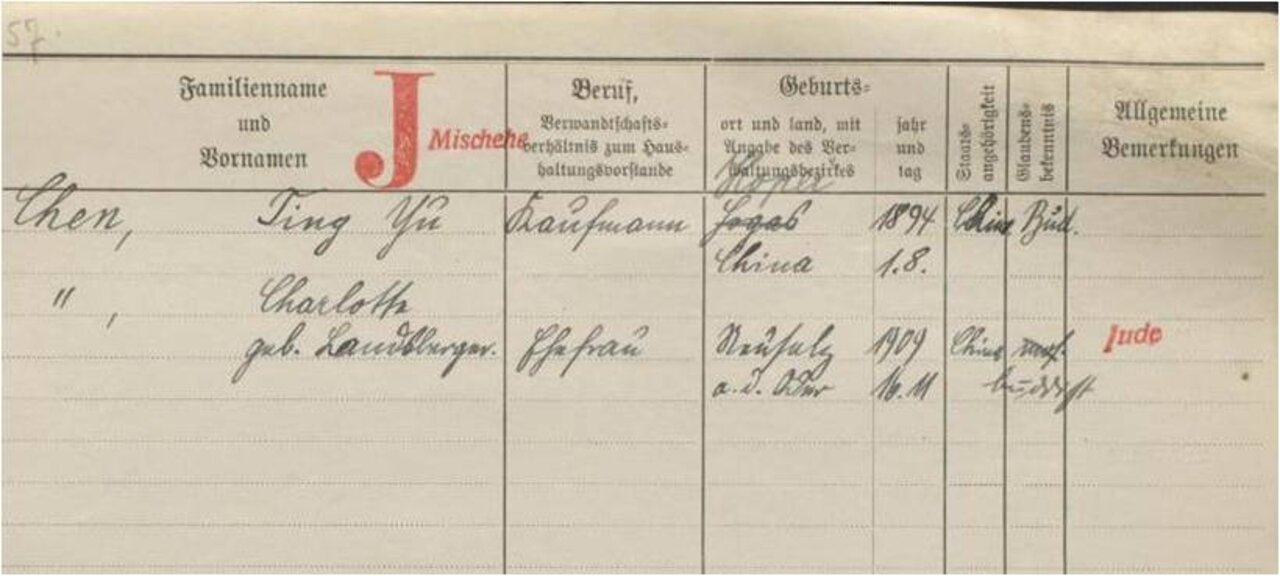 57.
Familienname
und
Vornamen
J
Mischehe
Beruf,
Verwandtschafts-
verhältnis zum Haus-
haltungsvorstande
Geburts-
ort und land, mit
Angabe des Ver-
waltungsbezirkes
jahr
und
tag
Staats-
angehörigkeit
Glaubens-
bekenntnis
Allgemeine
Bemerkungen
Chen, Ting Yu Kaufmann 1894 China Bud.
China 1.8.
" , Charlotte
geb. Landsberger. Ehefrau Neusalz 1909 China Jude
a. d. Oder 16.11